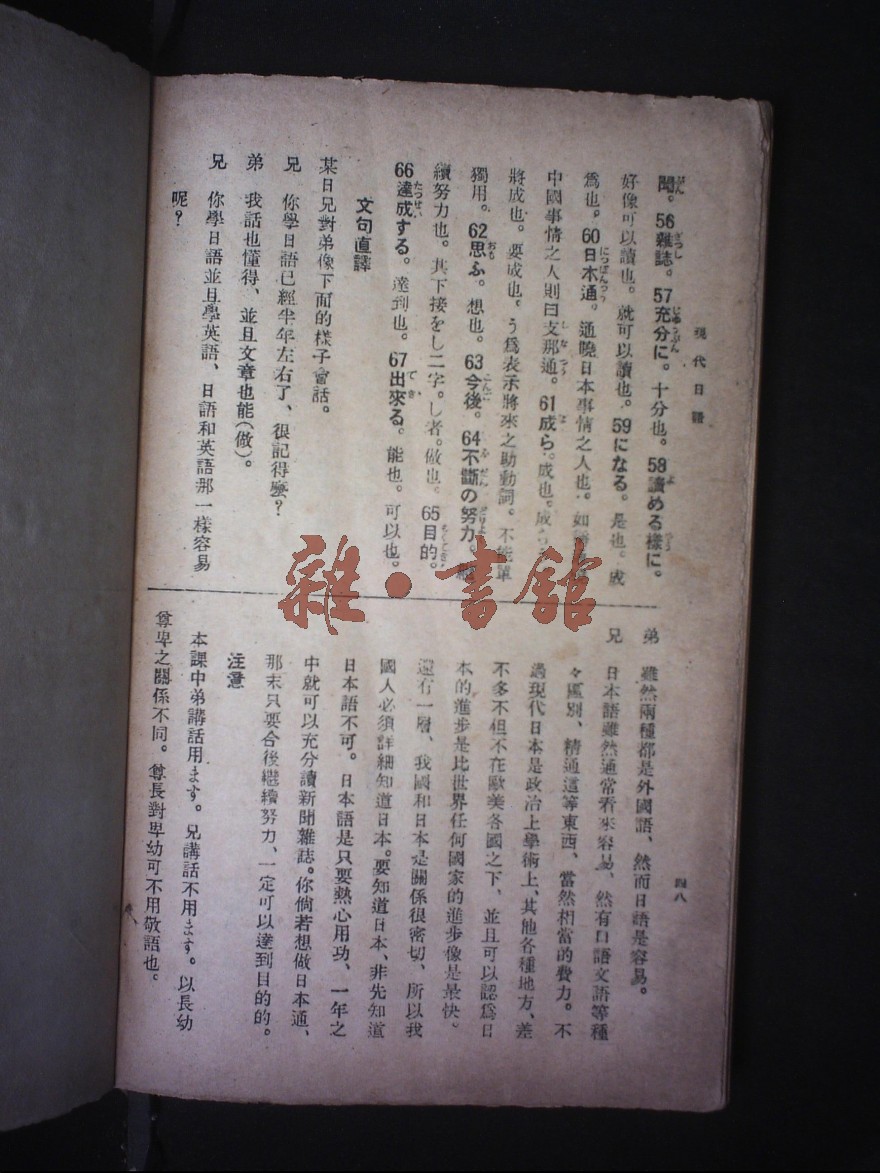 現代日語
聞。56雜誌。57充分に。十分也。58讀める樣に。
好像可以讀也。就可以讀也。59になる。是也。成
爲也。60日本通。通曉日本事情之人也。如
中國事情之人則曰支那通。61成ら。成也。成
將成也。要成也。う爲表示將來之助動詞。不能單
獨用。62思ふ。想也。63今後。64不斷の努力。
續努力也。其下接をし二字。し者。做也。65目的。
66達成する。達到也。67出來る。能也。可以也。
文句直譯
某日兄對弟像下面的樣子會話。
兄 你學日語已經半年左右了、很記得麼？
弟 我話也懂得、並且文章也能(做)。
兄 你學日語並且學英語、日語和英語那一樣容易
呢？
四八
弟 雖然兩種都是外國語、然而日語是容易。
兄 日本語雖然通常看來容易、然有口語文語等種
々區別、精通這等東西、當然相當的費力。不
過現代日本是政治上學術上、其他各種地方、差
不多不但不在歐美各國之下、並且可以認爲日
本的進步是比世界任何國家的進步像是最快。
還有一層、我國和日本是關係很密切、所以我
國人必須詳細知道日本。要知道日本、非先知道
日本語不可。日本語是只要熱心用功、一年之
中就可以充分讀新聞雜誌。你倘若想做日本通、
那末只要合後繼續努力、一定可以達到目的的。
注意
本課中弟講話用ます。兄講話不用ます。以長幼
尊卑之關係不同。尊長對卑幼可不用敬語也。
雜·書館